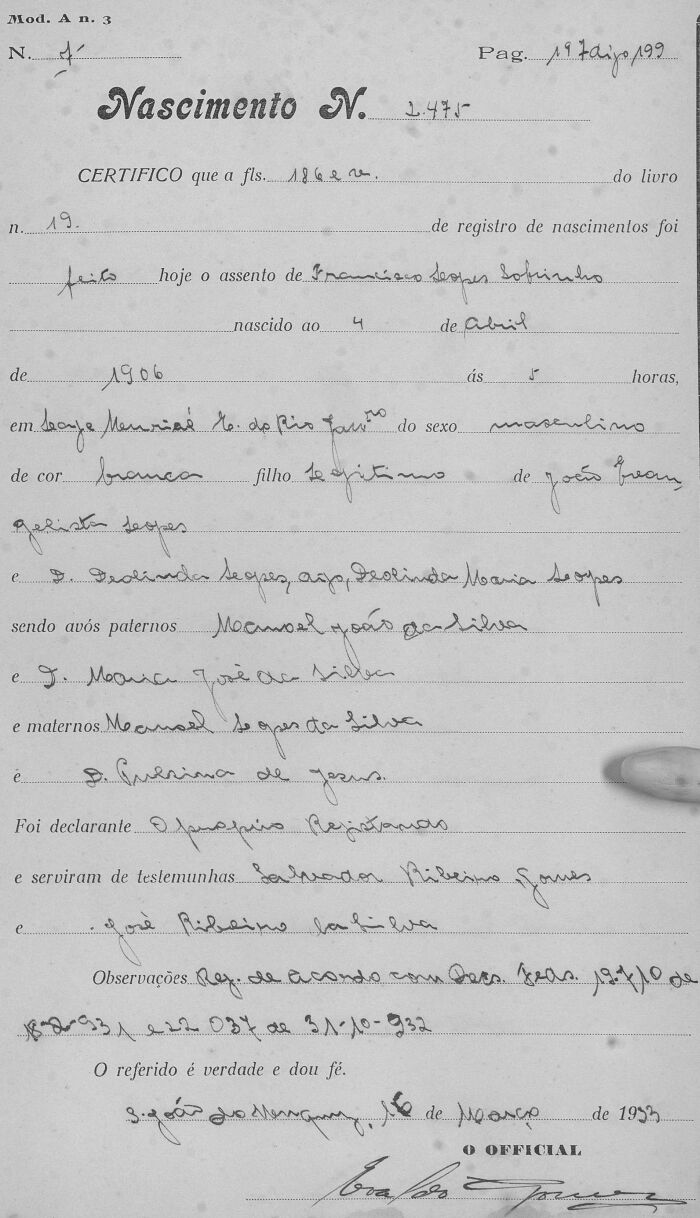 Mod. A n. 3
N. 7 Pag. 197 digo, 199
Nascimento N. 2.475
CERTIFICO que a fls. 186 e v. do livro
n. 19. de registro de nascimentos foi
feito hoje o assento de Francisco Lopes Sobrinho
nascido ao 4 de Abril
de 1906 ás 5 horas,
em Lage Muriaé E. do Rio Janro do sexo masculino
de cor branca filho Legitimo de João Evan
gelista Lopes
e D. Deolinda Lopes, digo, Deolinda Maria Lopes
sendo avós paternos Manoel João da Silva
e D. Maria José da Silva
e maternos Manoel Lopes da Silva
e D. de Jesus.
Foi declarante O proprio Registando
e serviram de testemunhas Salvador Ribeiro Gomes
e José Ribeiro da Silva
Observações Reg. de acordo com Decs. Feds. 19.710 de
18-2-931 e 22 037 de 31-10-932
O referido é verdade e dou fé.
S. João do 16 de Março de 1933
O OFFICIAL